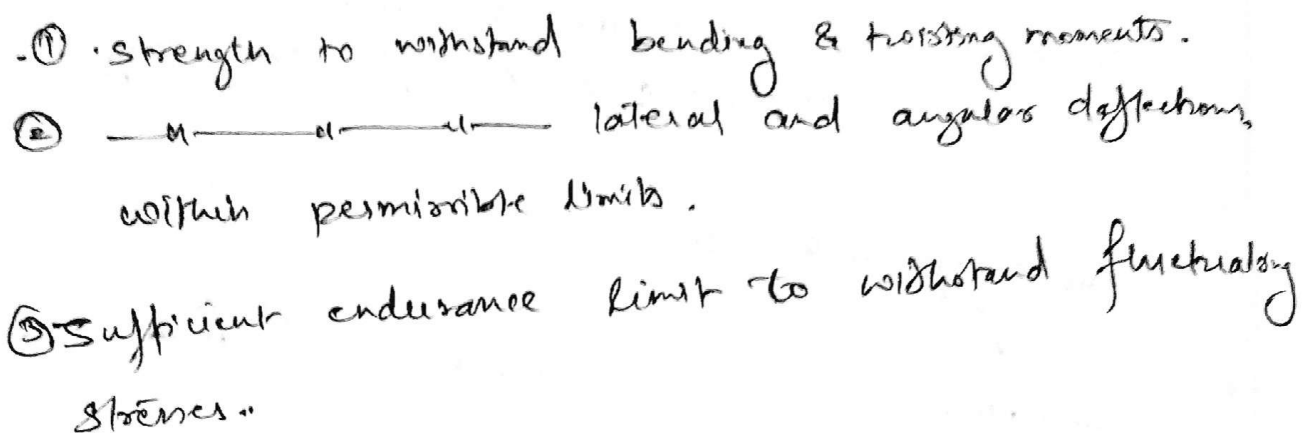 ① . strength to withstand bending & twisting moments.
② —〃——〃——〃—— lateral and angular deflections,
within permissible limits.
③ Sufficient endurance limit to withstand fluctuating
stresses..